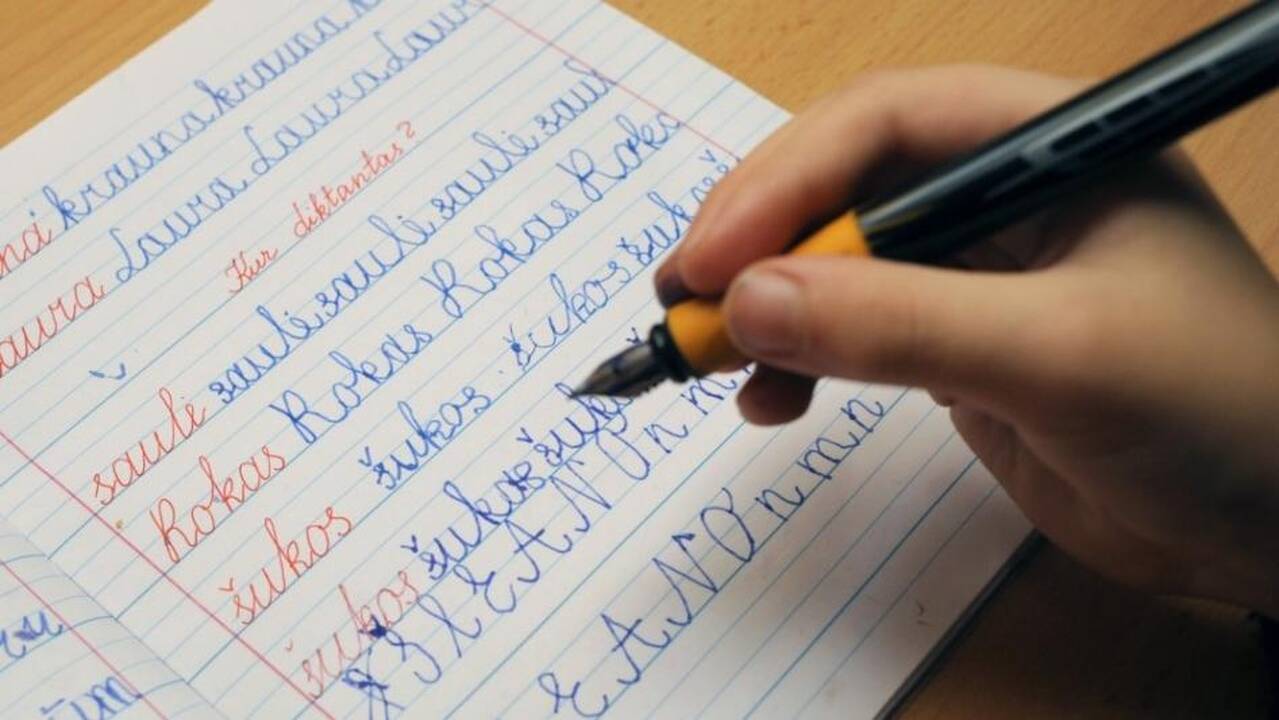 krauna krauna
Laura Laura Laura
Kur diktantas?
saulė saulė saulė saulė saul
Rokas Rokas Rokas Roka
šukos šukos šukos šukos
šukos šukos šukos
E A N O n m
E A N O n m n